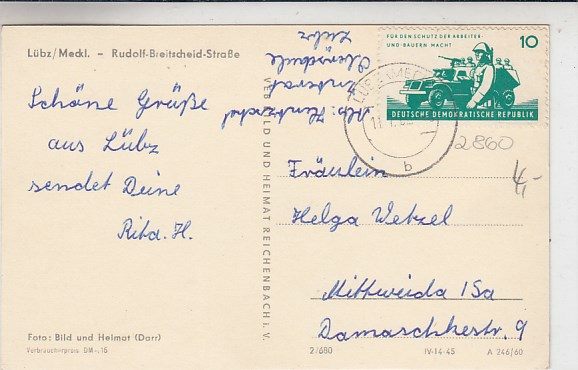 Lübz/Meckl. - Rudolf-Breitscheid-Straße
Schöne Grüße
aus Lübz
sendet Deine
Rita. H.
Foto: Bild und Heimat (Darr)
Verbraucherpreis DM -,15
VEB BILD UND HEIMAT REICHENBACH i. V.
Oberschule
Lübz
FÜR DEN SCHUTZ DER ARBEITER-
UND-BAUERN MACHT
10
DEUTSCHE DEMOKRATISCHE REPUBLIK
b
2860
4,-
Fräulein
Helga Wetzel
Mittweida 15a
Damaschkestr. 9
2/680
IV-14-45
A 246/60